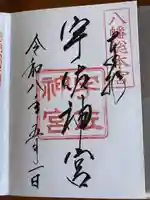 八幡総本宮
奉拝
宇佐神宮
宇佐神宮
令和八年五月二日